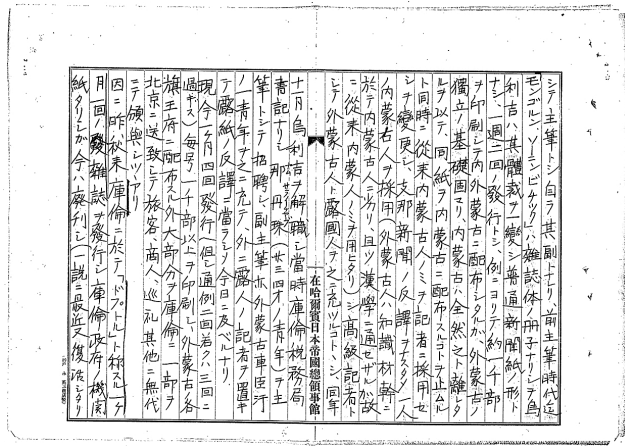 シテ主筆トシ自ラ其副トナリ前主筆時代迄
モンゴルン、ソーニンビチックハ雑誌体ノ冊子ナリシヲ烏
利吉ハ其體裁ヲ一變シ普通新聞紙ノ形ト
ナシ、一週二回ノ發行トシ、例ニヨリテ約一千部
ヲ印刷シテ内外蒙古ニ配布シタルガ外蒙古ノ
獨立ノ基礎固マリ、内蒙古ハ全然之ト離レタ
ルヲ以テ、同紙ヲ内蒙古ニ配布スルコトヲ止ムル
ト同時ニ從来内蒙古人ノミヲ記者ニ採用セ
シヲ變更シ、支那新聞ノ反譯ヲナスタメ一人
ノ内蒙古人ヲ採用(外蒙古人ハ知識材幹ニ
於テ内蒙古人ニ劣リ、且ツ漢學ニ通セザルガ故
ニ從来内蒙人ノミヲ用ヒタリ)シ高級記者ト
シテ外蒙古人ト露國人ヲ之ニ充ツルコトトシ、同年
在哈爾賓日本帝國總領事館
十一月烏利吉ヲ解職シ當時庫倫税務局
書記ナリシ那丹珠(廿三四才ノ青年)ヲ主
筆トシテ招聘シ、副主筆亦外蒙古車臣汗
ノ一青年ヲ之ニ充テ、外ニ露人ノ記者ヲ置キ
テ露紙ノ反譯ニ當ラシメ今日ニ及ベルナリ
現今一ヶ月四回發行(但シ通例二回若クハ三回ニ
過キス)毎号一千部以上ヲ印刷シ、外蒙古各
旗王府ニ配布スル外大部分ヲ庫倫ニ一部ヲ
北京ニ送致シテ旅客、商人、巡礼其他ニ無代
ニテ頒與シツヽアリ
因ニ昨秋来庫倫ニ於テ「ドプトルト」稱スル一ヶ
月一回ノ雑誌ヲ發行シ庫倫政府ノ機関
紙タリシガ今ハ廃刊シ一説ニ最近又復活シタリ